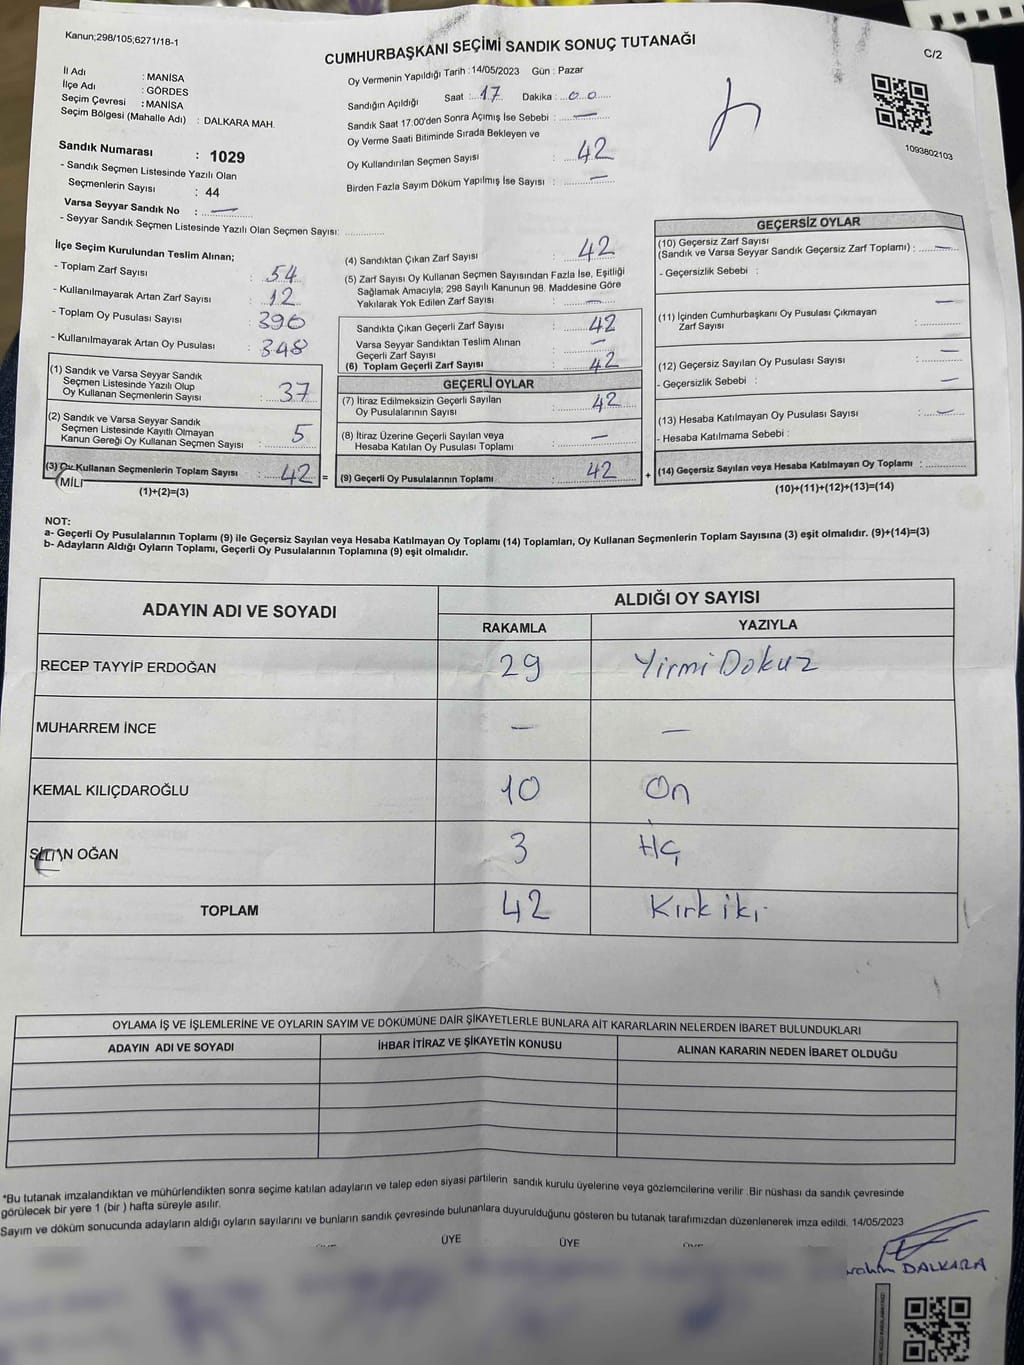 Kanun;298/105;6271/18-1
CUMHURBAŞKANI SEÇİMİ SANDIK SONUÇ TUTANAĞI
C/2
İl Adı : MANİSA
İlçe Adı : GÖRDES
Seçim Çevresi : MANİSA
Seçim Bölgesi (Mahalle Adı) : DALKARA MAH.
Sandık Numarası : 1029
- Sandık Seçmen Listesinde Yazılı Olan
Seçmenlerin Sayısı : 44
Varsa Seyyar Sandık No : —
- Seyyar Sandık Seçmen Listesinde Yazılı Olan Seçmen Sayısı:
Oy Vermenin Yapıldığı Tarih : 14/05/2023 Gün : Pazar
Sandığın Açıldığı Saat : 17 Dakika : 00
Sandık Saat 17.00'den Sonra Açımış İse Sebebi : —
Oy Verme Saati Bitiminde Sırada Bekleyen ve
Oy Kullandırılan Seçmen Sayısı : 42
Birden Fazla Sayım Döküm Yapılmış İse Sayısı : —
1093802103
İlçe Seçim Kurulundan Teslim Alınan;
- Toplam Zarf Sayısı : 54
- Kullanılmayarak Artan Zarf Sayısı : 12
- Toplam Oy Pusulası Sayısı : 390
- Kullanılmayarak Artan Oy Pusulası : 348
(1) Sandık ve Varsa Seyyar Sandık
Seçmen Listesinde Yazılı Olup
Oy Kullanan Seçmenlerin Sayısı : 37
(2) Sandık ve Varsa Seyyar Sandık
Seçmen Listesinde Kayıtlı Olmayan
Kanun Gereği Oy Kullanan Seçmen Sayısı : 5
(3) Oy Kullanan Seçmenlerin Toplam Sayısı : 42 =
MİLİ
(1)+(2)=(3)
(4) Sandıktan Çıkan Zarf Sayısı : 42
(5) Zarf Sayısı Oy Kullanan Seçmen Sayısından Fazla İse, Eşitliği
Sağlamak Amacıyla; 298 Sayılı Kanunun 98. Maddesine Göre
Yakılarak Yok Edilen Zarf Sayısı : —
Sandıkta Çıkan Geçerli Zarf Sayısı : 42
Varsa Seyyar Sandıktan Teslim Alınan
Geçerli Zarf Sayısı : —
(6) Toplam Geçerli Zarf Sayısı : 42
GEÇERLİ OYLAR
(7) İtiraz Edilmeksizin Geçerli Sayılan
Oy Pusulalarının Sayısı : 42
(8) İtiraz Üzerine Geçerli Sayılan veya
Hesaba Katılan Oy Pusulası Toplamı : —
(9) Geçerli Oy Pusulalarının Toplamı : 42 +
GEÇERSİZ OYLAR
(10) Geçersiz Zarf Sayısı
(Sandık ve Varsa Seyyar Sandık Geçersiz Zarf Toplamı) : —
- Geçersizlik Sebebi :
(11) İçinden Cumhurbaşkanı Oy Pusulası Çıkmayan
Zarf Sayısı : —
(12) Geçersiz Sayılan Oy Pusulası Sayısı : —
- Geçersizlik Sebebi : —
(13) Hesaba Katılmayan Oy Pusulası Sayısı : —
- Hesaba Katılmama Sebebi :
(14) Geçersiz Sayılan veya Hesaba Katılmayan Oy Toplamı :
(10)+(11)+(12)+(13)=(14)
NOT:
a- Geçerli Oy Pusulalarının Toplamı (9) ile Geçersiz Sayılan veya Hesaba Katılmayan Oy Toplamı (14) Toplamları, Oy Kullanan Seçmenlerin Toplam Sayısına (3) eşit olmalıdır. (9)+(14)=(3)
b- Adayların Aldığı Oyların Toplamı, Geçerli Oy Pusulalarının Toplamına (9) eşit olmalıdır.
ADAYIN ADI VE SOYADI
ALDIĞI OY SAYISI
RAKAMLA YAZIYLA
RECEP TAYYİP ERDOĞAN 29 Yirmi Dokuz
MUHARREM İNCE — —
KEMAL KILIÇDAROĞLU 10 On
OĞAN 3
TOPLAM 42 Kırk iki
OYLAMA İŞ VE İŞLEMLERİNE VE OYLARIN SAYIM VE DÖKÜMÜNE DAİR ŞİKAYETLERLE BUNLARA AİT KARARLARIN NELERDEN İBARET BULUNDUKLARI
ADAYIN ADI VE SOYADI İHBAR İTİRAZ VE ŞİKAYETİN KONUSU ALINAN KARARIN NEDEN İBARET OLDUĞU
*Bu tutanak imzalandıktan ve mühürlendikten sonra seçime katılan adayların ve talep eden siyasi partilerin sandık kurulu üyelerine veya gözlemcilerine verilir .Bir nüshası da sandık çevresinde
görülecek bir yere 1 (bir ) hafta süreyle asılır.
Sayım ve döküm sonucunda adayların aldığı oyların sayılarını ve bunların sandık çevresinde bulunanlara duyurulduğunu gösteren bu tutanak tarafımızdan düzenlenerek imza edildi. 14/05/2023
ÜYE ÜYE
DALKARA